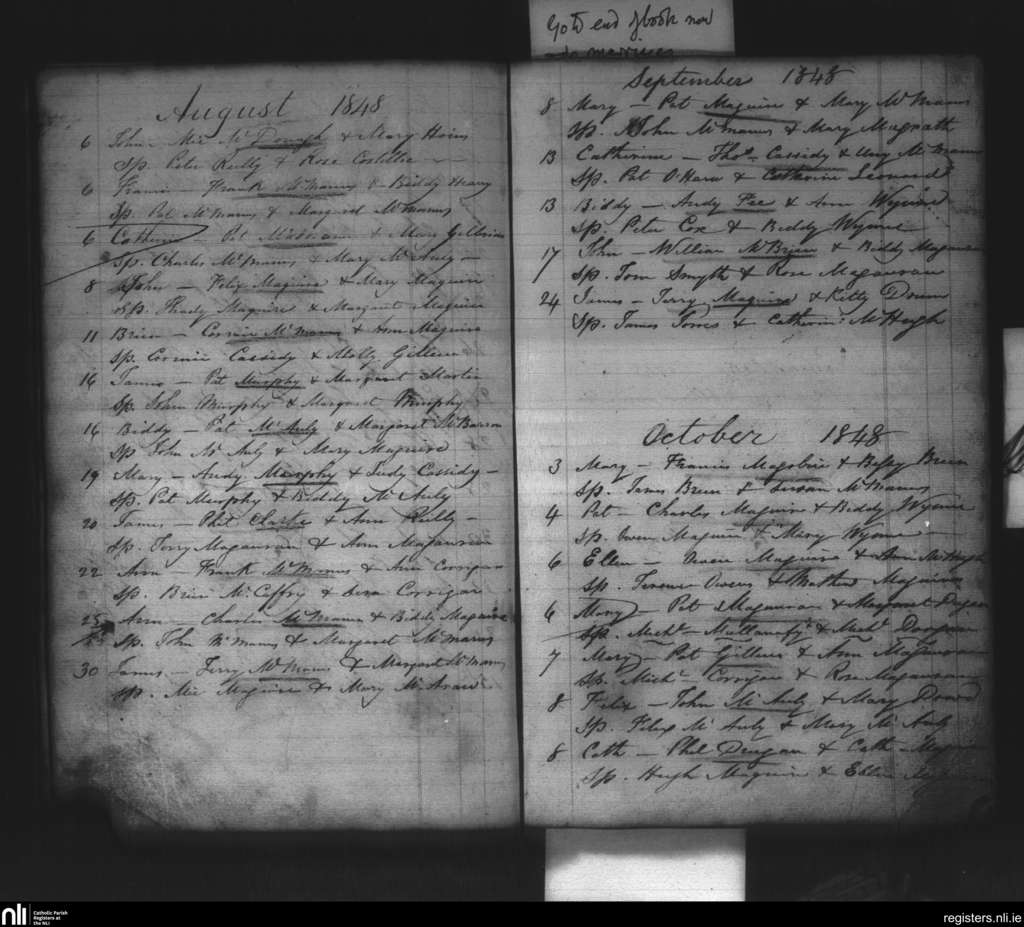 Go to end of book now
August 1848
6 John - Mic McDonagh & Mary
Sp. Peter Reilly & Rose Costello
6 Francis - Frank McManus & Biddy Heavy
Sp. Pat McManus & Margaret McManus
6 Catherine - Pat & Mary
Sp. Charles McManus & Mary McAuly
8 John - Felix Maguire & Mary Maguire
Sp. Thady Maguire & Margaret Maguire
11 Brien - Cormic McManus & Ann Maguire
Sp. Cormic Cassidy & Molly Gillen
16 James - Pat Murphy & Margaret Martin
Sp. John Murphy & Margaret Murphy
16 Biddy - Pat McAuly & Margaret McBarron
Sp John McAuly & Mary Maguire
19 Mary - Andy Murphy & Judy Cassidy
Sp. Pat Murphy & Biddy McAuly
20 James - Phil Clarke & Ann Reilly
Sp. Terry Magauran & Ann Magauran
22 Ann - Frank McManus & Ann Corrigan
Sp. Brien McCaffry & Corrigan
25 Ann - Charles McManus & Biddy Maguire
Sp. John McManus & Margaret McManus
30 James - Terry McManus & Margaret McManus
Sp. Mic Maguire & Mary
September 1848
8 Mary - Pat Maguire & Mary McManus
Sp. John McManus & Mary Magrath
13 Catherine - Thos. Cassidy & Una McManus
Sp. Pat OHara & Catherine Leonard
13 Biddy - Andy Fee & Ann Wynne
Sp. Peter Cox & Biddy Wynne
17 John - William McBrien & Biddy Magauran
Sp. Tom Smyth & Rose Magauran
24 James - Terry Maguire & Kitty
Sp. James & Catherine McHugh
October 1848
3 Mary - Francis & Bessy Breen
Sp. James Breen & Susan McManus
4 Pat - Charles Maguire & Biddy Wynne
Sp. Owen Maguire & Mary Wynne
6 Ellen - Owen Maguire & Ann McHugh
Sp. Terence Owens & Maguire
6 Mary - Pat Magauran & Margaret
Sp. Michl. & Michl.
7 Mary - Pat Gillen & Ann Magauran
Sp. Michl. Corrigan & Rose Magauran
8 Felix - John McAuly & Mary
Sp. Felix McAuly & Mary McAuly
8 Cath - Phil & Cath
Sp. Hugh Maguire & Ellen
nli
Catholic Parish
Registers at
the NLI
registers.nli.ie